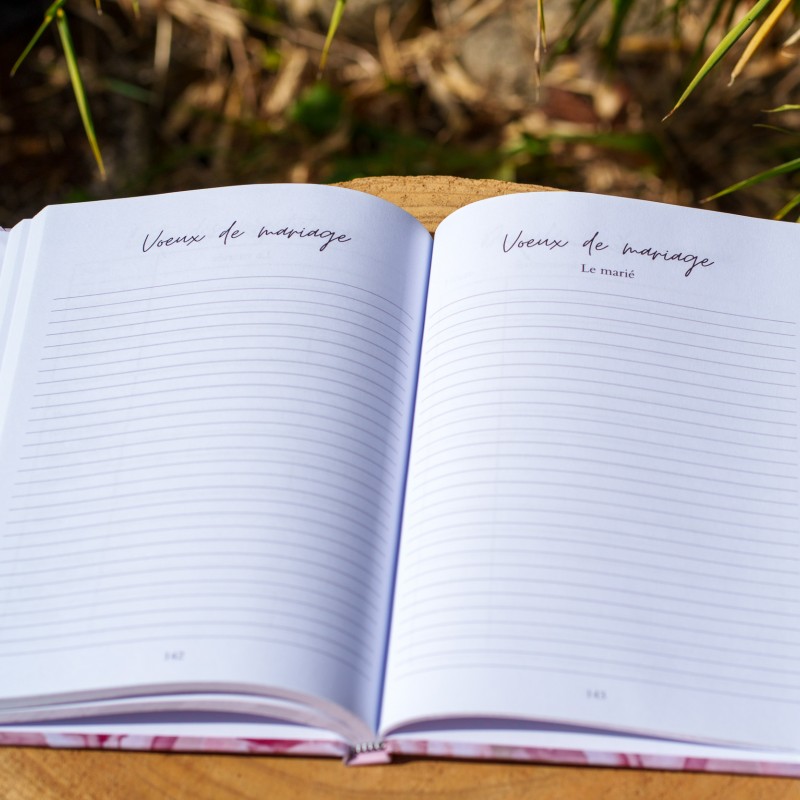 Voeux de mariage
142
Voeux de mariage
Le marié
143